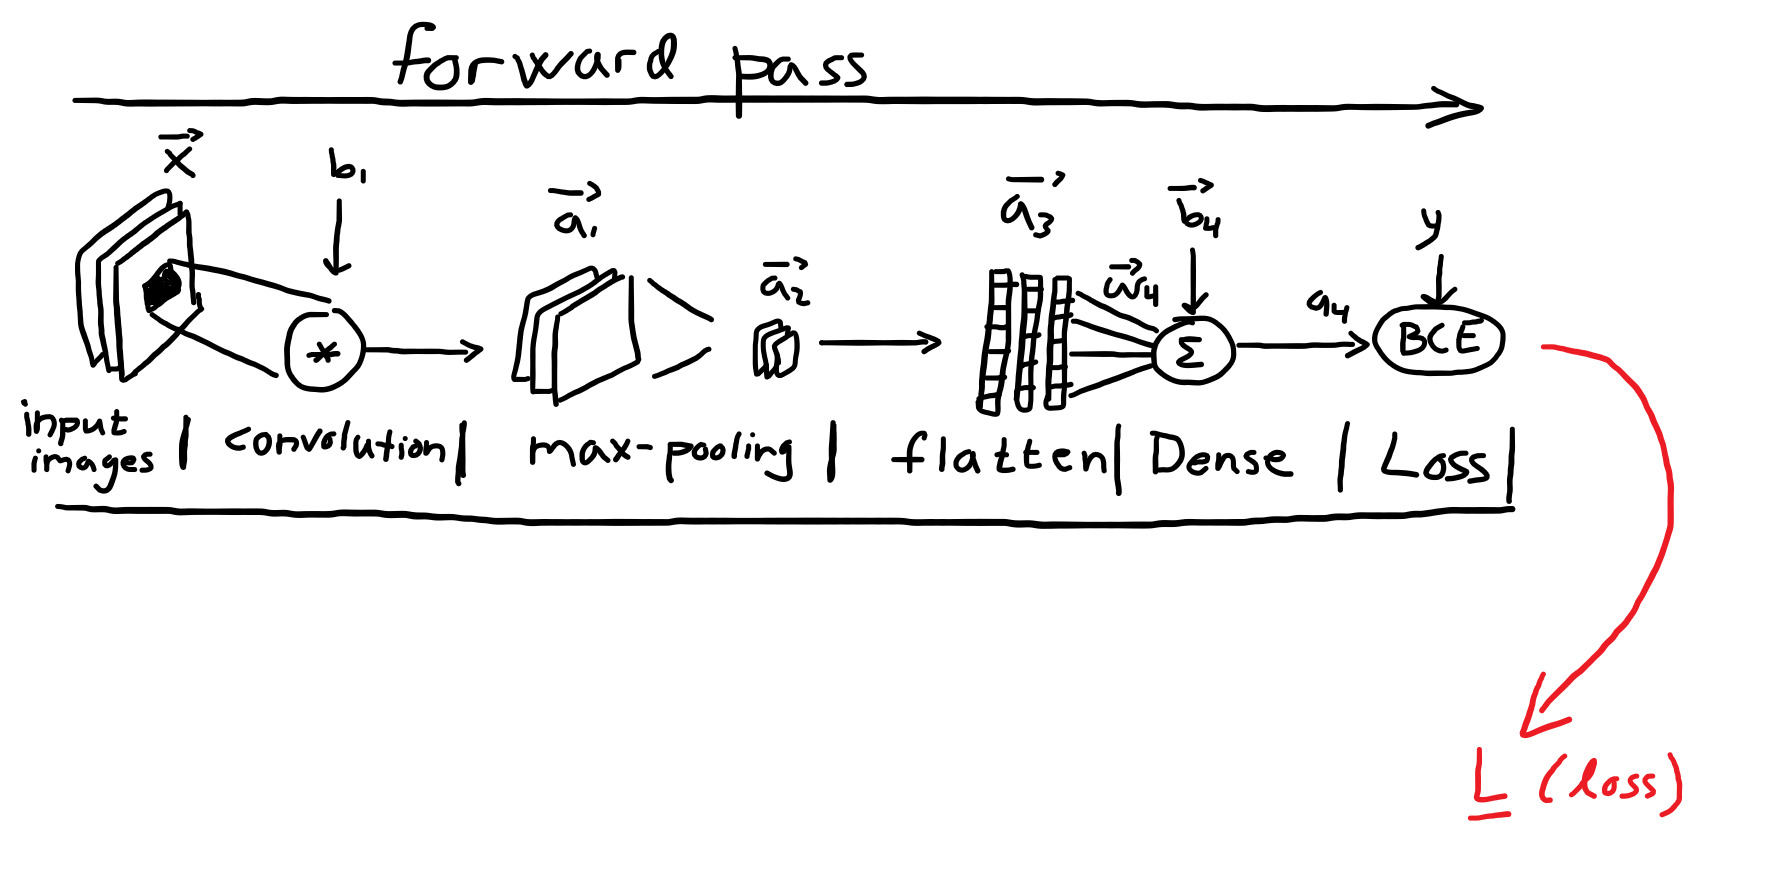 forward pass
x⃗
b₁
a⃗₁
a⃗₂
a⃗₃
w⃗₄
b⃗₄
a₄
y
*
Σ
BCE
input images | convolution | max-pooling | flatten | Dense | Loss |
L (loss)